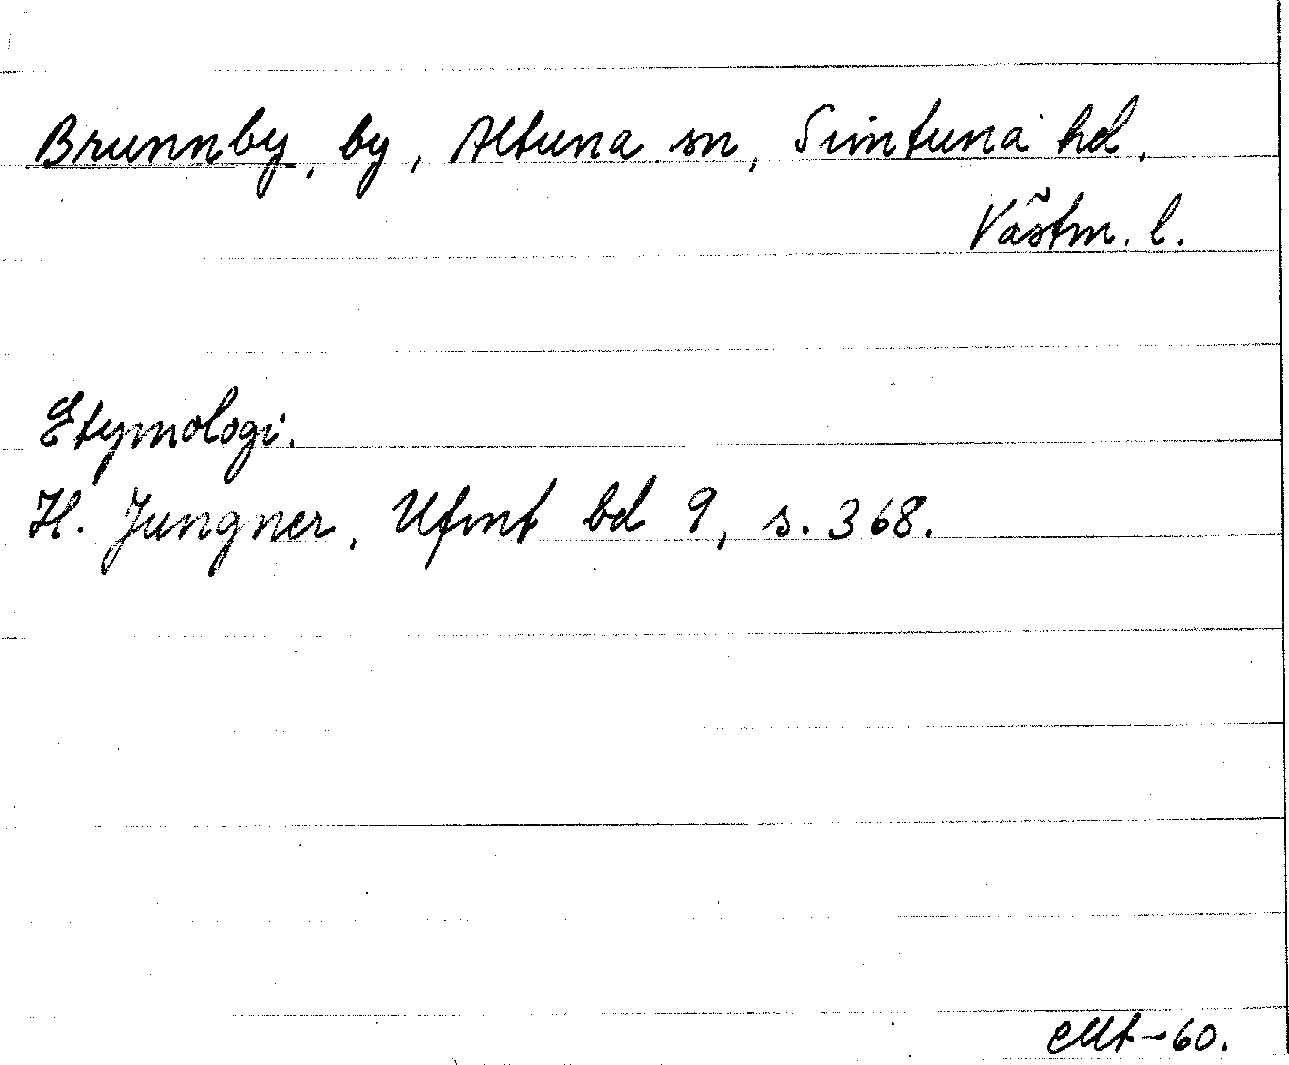 Brunnby, by, Altuna sn, Simtuna hd,
Västm. l.
Etymologi.
H. Jungner, Ufmt bd 9, s. 368.
-60.